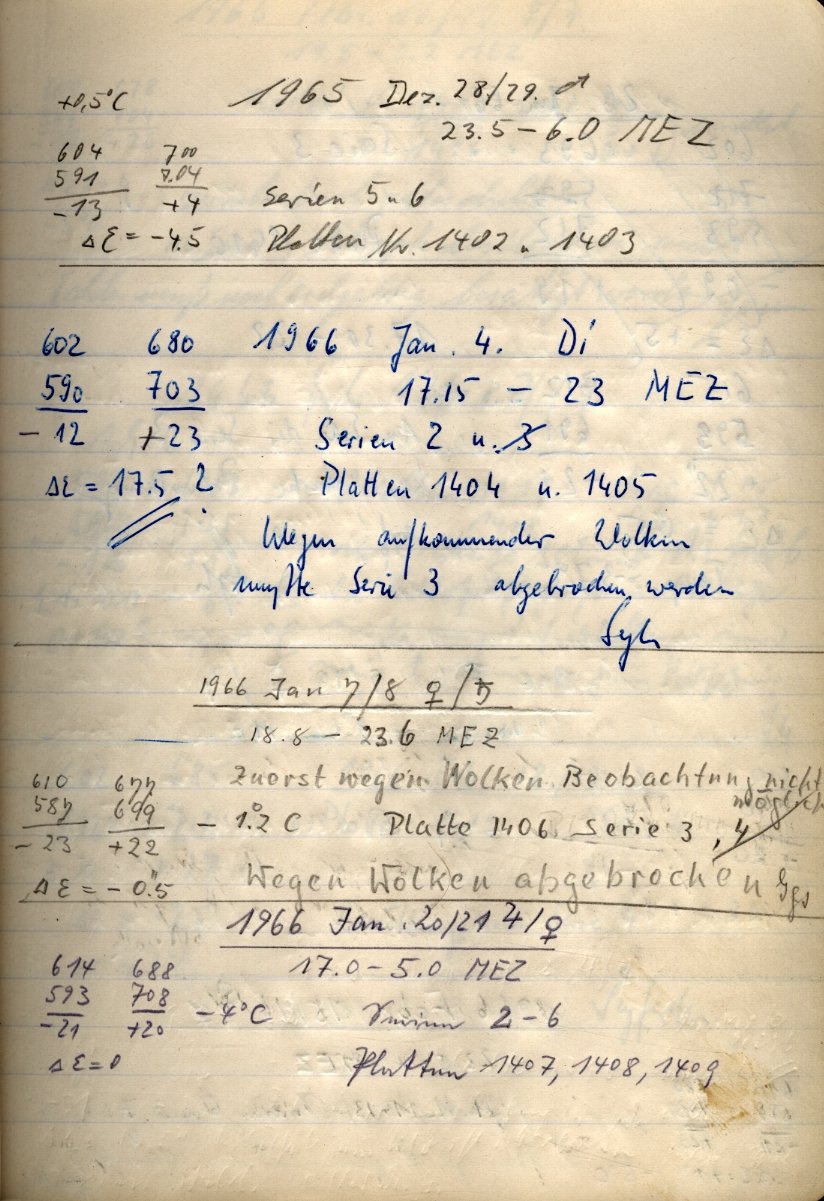 +0,5°C 1965 Dez. 28/29. ♂
23.5 – 6.0 MEZ
604 700
591 704
-13 +4 Serien 5 u 6
Δε = -4.5 Platten Nr. 1402 u 1403
602 680 1966 Jan. 4. Di
590 703 17.15 – 23 MEZ
- 12 +23 Serien 2 u. 3
Δε = 17.5 ? Platten 1404 u. 1405
Wegen aufkommender Wolken
mußte Serie 3 abgebrochen werden
1966 Jan 7/8 ♀/♄
18.8 – 23.6 MEZ
610 677 Zuerst wegen Wolken Beobachtung nicht möglich
587 699 – 1.2°C Platte 1406 Serie 3, 4
- 23 +22
Δε = - 0."5 Wegen Wolken abgebrochen
1966 Jan. 20/21 ♃/♀
614 688 17.0 – 5.0 MEZ
593 708 – 4°C Serien 2 – 6
-21 +20
Δε = 0 Platten 1407, 1408, 1409